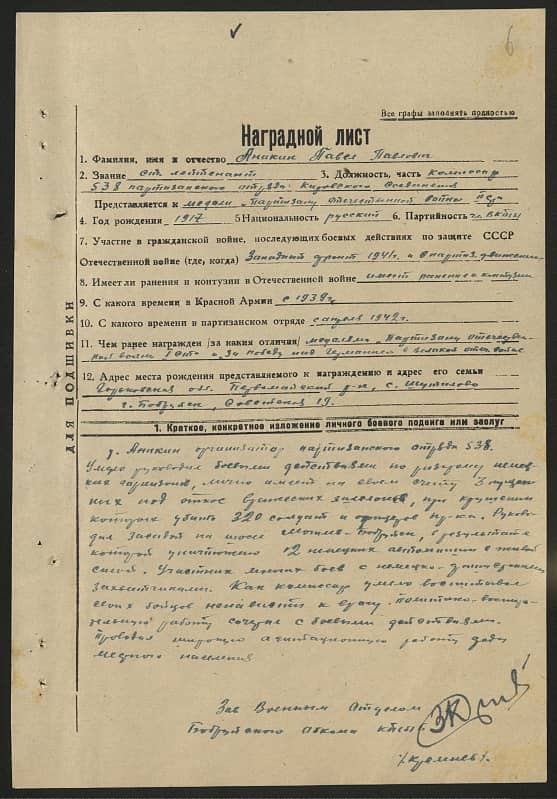 6
Все графы заполнять полностью
Наградной лист
1. Фамилия, имя и отчество Аникин Павел Павлович
2. Звание ст. лейтенант 3. Должность, часть комиссар
538 партизанского отряда Кировского соединения
Представляется к медали "Партизану Отечественной Войны"
4. Год рождения 1917 5 Национальность русский 6. Партийность чл. ВКП(б)
7. Участие в гражданской войне, последующих боевых действиях по защите СССР
Отечественной войне (где, когда) Западный фронт 1941 г. и в партиз. движении
8. Имеет ли ранения и контузии в Отечественной войне имеет ранение и контузии
9. С какого времени в Красной Армии с 1939 г.
10. С какого времени в партизанском отряде с апреля 1942 г.
11. Чем ранее награжден /за какия отличия/ медалями "Партизану отечествен-
ной войны и "За победу над Германией в великой отеч. войне
12. Адрес места рождения представляемого к награждению и адрес его семьи
Горьковская обл. Первомайский р-н, с. Шутилово
г. Бобруйск, Советская 19.
ДЛЯ ПОДШИВКИ
1. Краткое, конкретное изложение личного боевого подвига или заслуг
т. Аникин организатор партизанского отряда 538.
Умело руководил боевыми действиями по разгрому немец-
ких гарнизонов, лично имеет на своем счету 3 пущен-
ных под откос вражеских эшелонов, при крушении
которых убито 320 солдат и офицеров пр-ка. Руково-
дил засадой на шоссе Бобруйск, в результате
которой уничтожено 12 немецких автомашин с живой
силой. Участник многих боев с немецко-
захватчиками. Как комиссар умело воспитывал
своих бойцов ненависти к врагу. Политико-воспита-
тельную работу сочетал с боевыми действиями.
Проводил широкую агитационную работу среди
местного населения
Зав Военным отделом
Бобруйского обкома КП(б)Б
/Кремнев/.